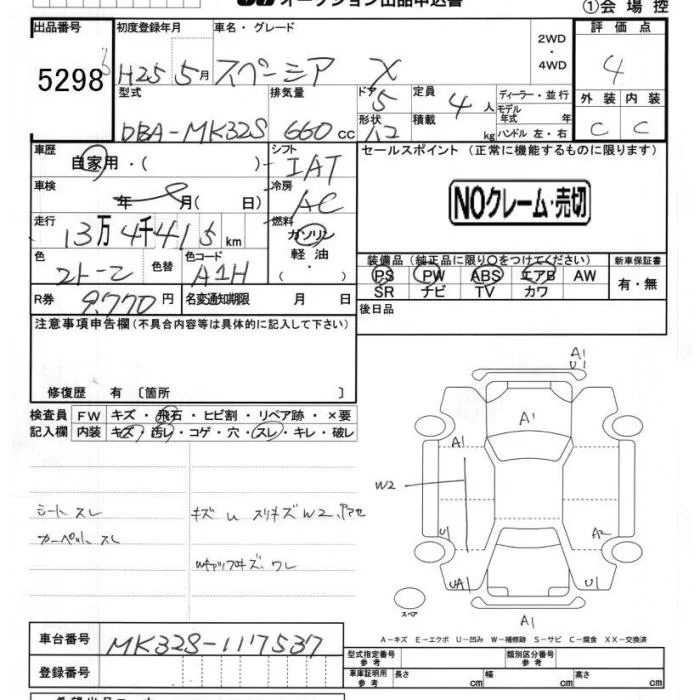 オークション出品申込書
①会場控
出品番号 初度登録年月 車名・グレード 評価点
5298 H25 5月 スペーシア X 2WD ・ 4WD 4
型式 排気量 ドア 5 定員 4人 ディーラー・並行 外装 内装
DBA-MK32S 660cc 形状 積載 kg モデル年式 年 C C
ハンドル 左・右
車歴 自家用・( )・ シフト IAT セールスポイント (正常に機能するものに限ります)
車検 年 月( 日) 冷房 AC
NOクレーム・売切
走行 13万4千415km 燃料 ガソリン 軽油
装備品(純正品に限り○をつけてください) 新車保証書
色 色替 色コード A1H PS PW ABS エアB AW 有・無
SR ナビ TV カワ
R券 9,770円 名変通知期限 月 日 後日品
注意事項申告欄(不具合内容等は具体的に記入して下さい)
修復歴 有 〔箇所 〕
検査員 FW キズ・飛石・ヒビ割・リペア跡・×要
記入欄 内装 キズ・汚レ・コゲ・穴・スレ・キレ・破レ
A1
U1
A1
A1
W2
U1 A2
UA1 U1
A1
スペア
シートスレ キズ U スリキズ W2
カーペットスレ
A-キズ E-エクボ U-凹み W-補修跡 S-サビ C-腐食 XX-交換済
車台番号 MK32S-117537
登録番号
型式指定番号 参考 類別区分番号 参考
車庫証明用 参考 長さ cm 幅 cm 高さ cm